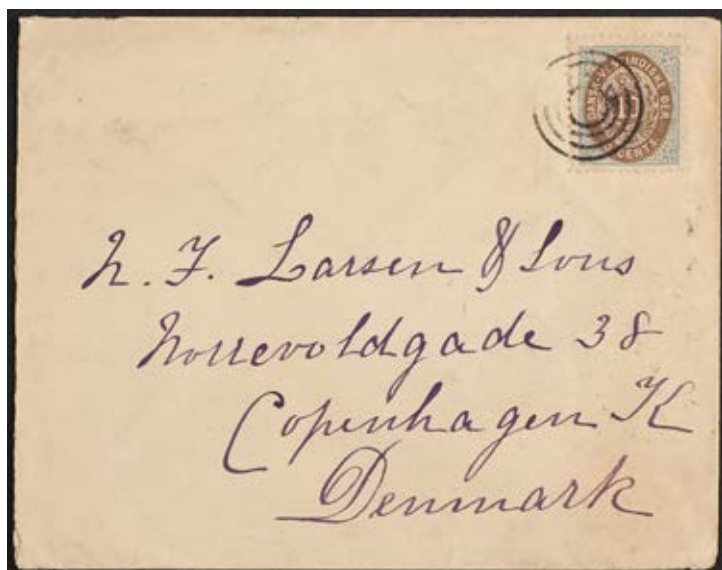 DANSK-VESTINDISKE ØER
15
CENTS
N. F. Larsen & Sons
Norrevoldgade 38
Copenhagen K
Denmark